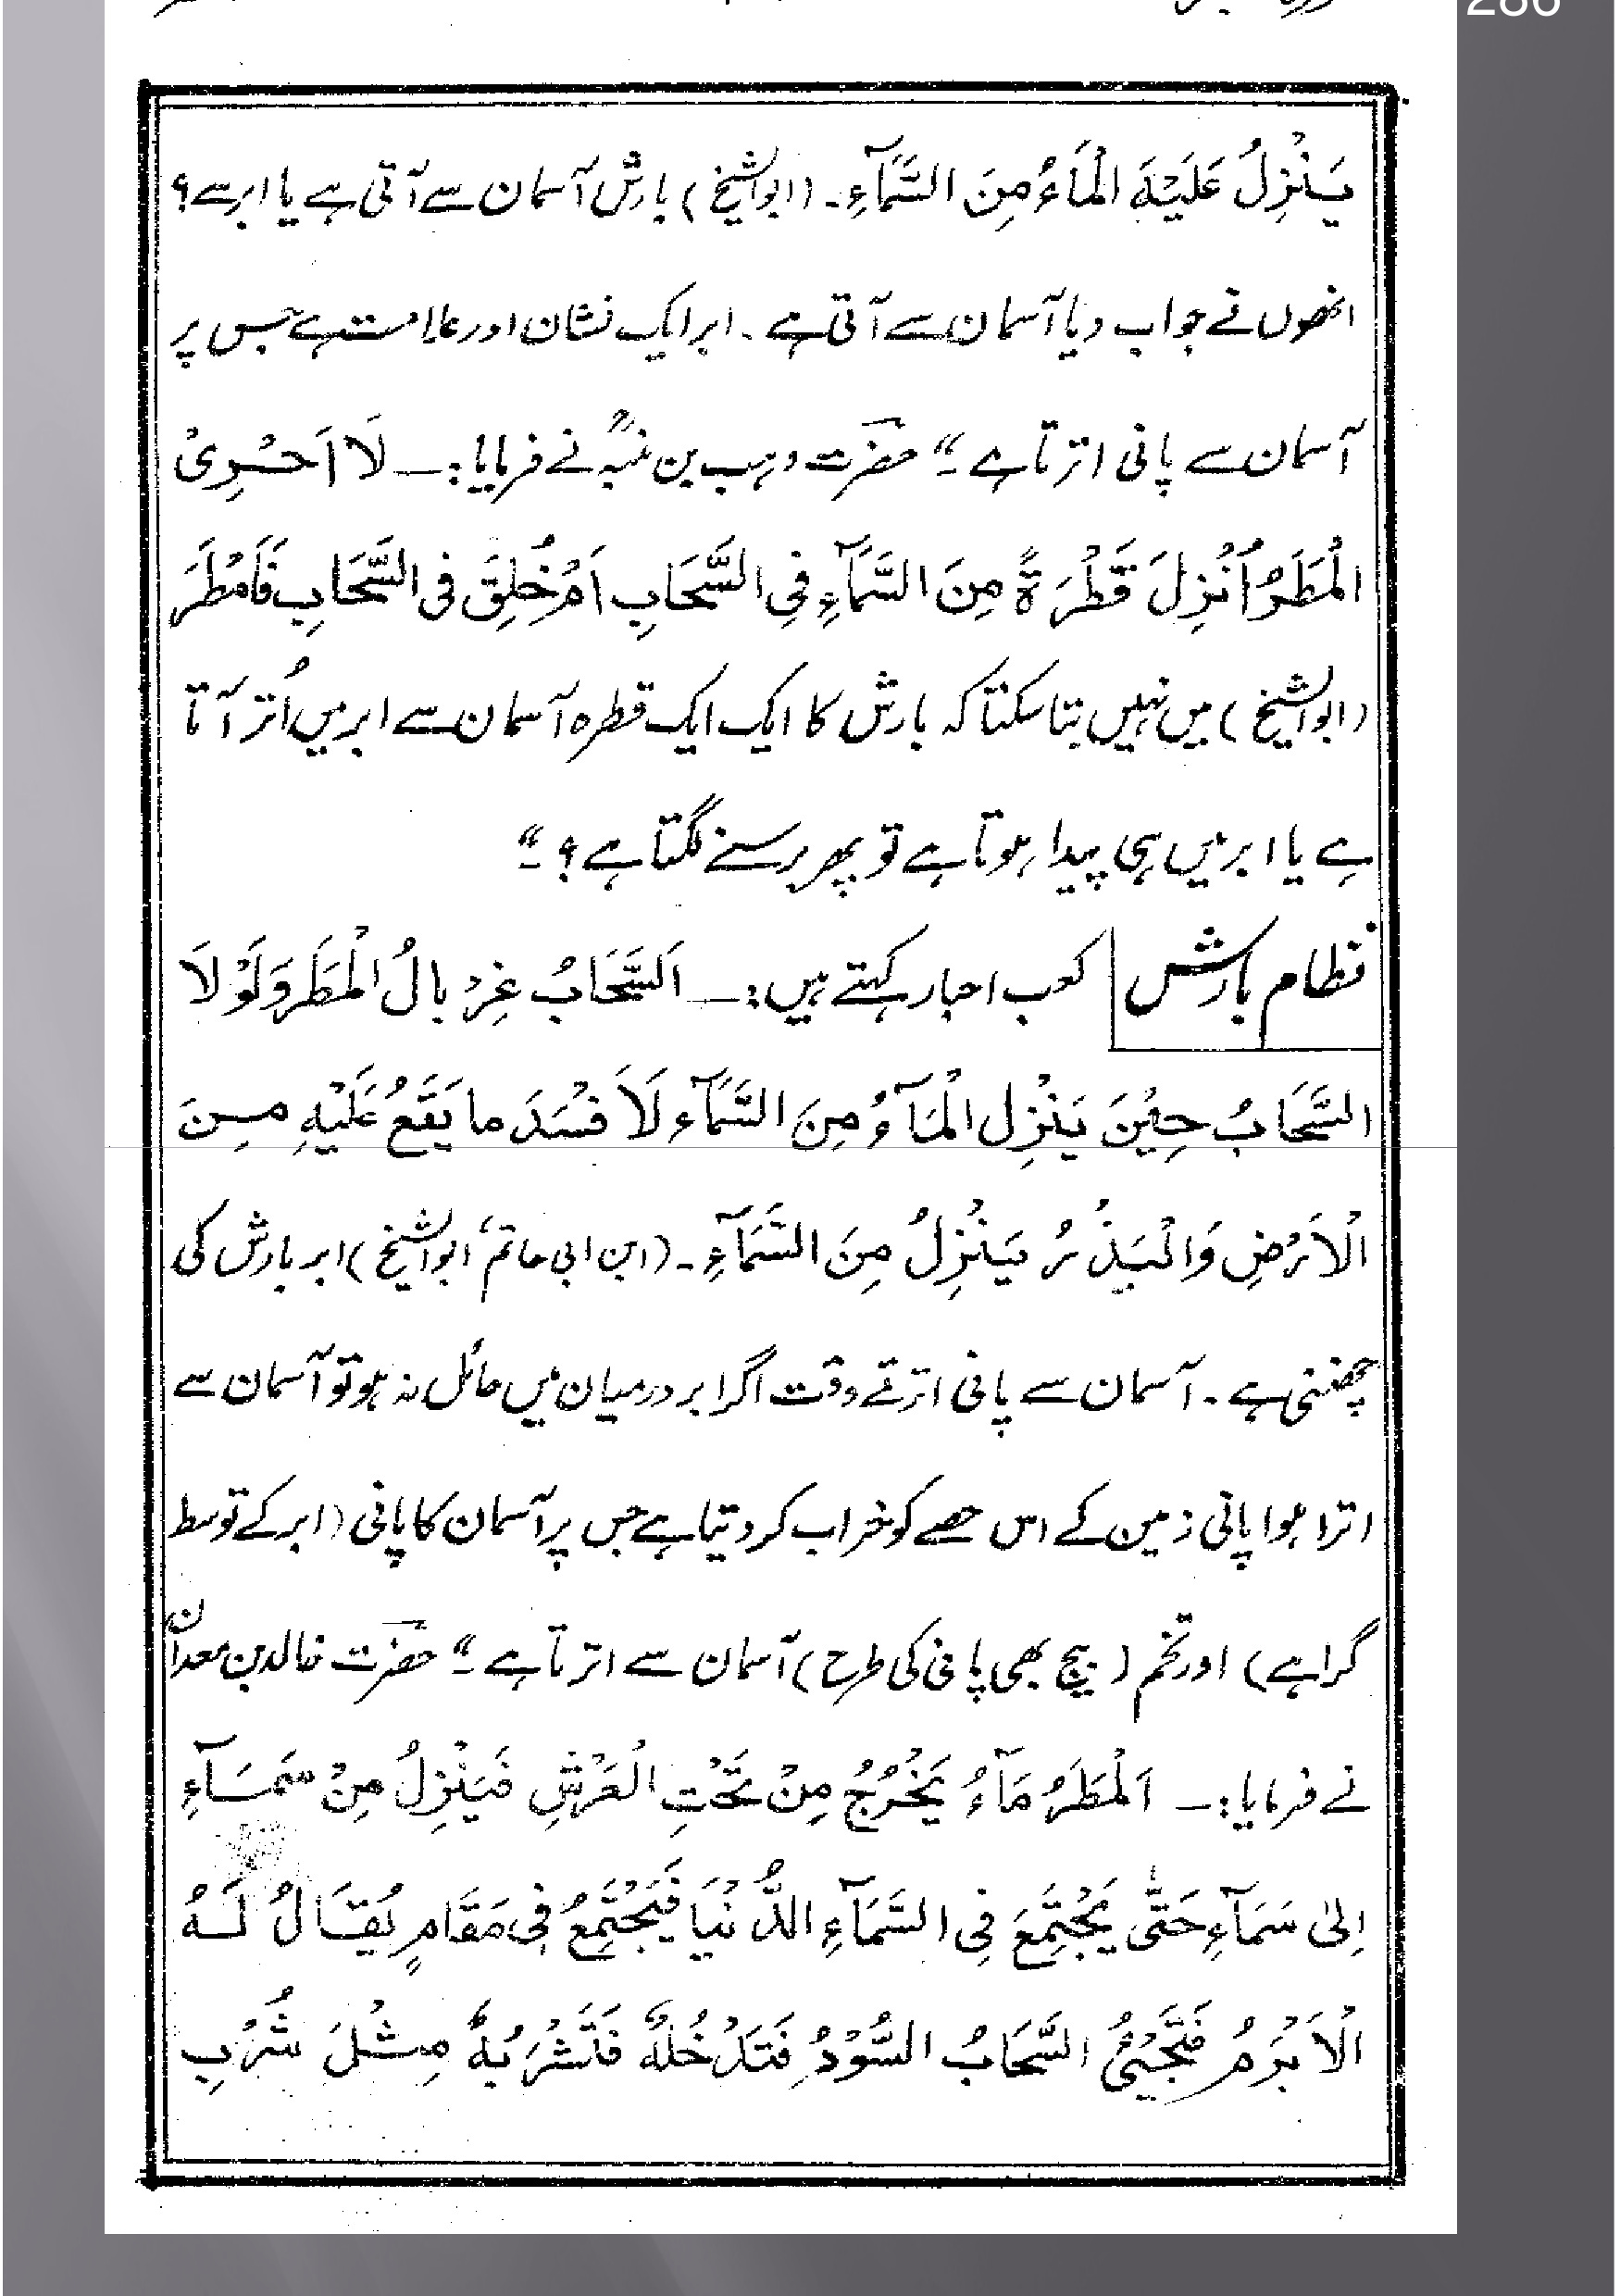 286
يَنْزِلُ عَلَيْهِ الْمَاءُ مِنَ السَّمَآءِ۔ (ابوالشیخ) بارش آسمان سے آتی ہے یا ابر سے؟
انھوں نے جواب دیا آسمان سے آتی ہے۔ ابر ایک نشان اور علامت ہے جس پر
آسمان سے پانی اترتا ہے۔“ حضرت وہب بن منبہؒ نے فرمایا:۔ لَا اَدْرِیْ
الْمَطَرُ اُنْزِلَ قَطْرَةً مِنَ السَّمَآءِ فِی السَّحَابِ اَمْ خُلِقَ فِی السَّحَابِ فَاَمْطَرَ
(ابوالشیخ) میں نہیں بتا سکتا کہ بارش کا ایک ایک قطرہ آسمان سے ابر میں اُتر آتا
ہے یا ابر میں ہی پیدا ہوتا ہے تو پھر برسنے لگتا ہے؟۔“
نظام بارش کعب احبار کہتے ہیں:۔ اَلسَّحَابُ غِرْبَالُ الْمَطَرِ وَلَوْلَا
السَّحَابُ حِیْنَ یَنْزِلُ الْمَآءُ مِنَ السَّمَآءِ لَاَفْسَدَ ما یَقَعُ عَلَیْهِ مِنَ
الْاَرْضِ وَالْبَذْرُ یَنْزِلُ مِنَ السَّمَآءِ۔ (ابن ابی حاتم، ابوالشیخ) ابر بارش کی
چھلنی ہے۔ آسمان سے پانی اترتے وقت اگر ابر درمیان میں حائل نہ ہو تو آسمان سے
اترا ہوا پانی زمین کے اس حصے کو خراب کر دیتا ہے جس پر آسمان کا پانی (ابر کے توسط
گرا ہے) اور تخم (بیج بھی پانی کی طرح) آسمان سے اترتا ہے۔“ حضرت خالد بن معدانؒ
نے فرمایا:۔ اَلْمَطَرُ مَآءُ یَخْرُجُ مِنْ تَحْتِ الْعَرْشِ فَیَنْزِلُ مِنْ سَمَآءٍ
اِلٰی سَمَآءٍ حَتّٰی یَجْتَمِعَ فِی السَّمَآءِ الدُّنْیَا فَیَجْتَمِعُ فِیْ مَقَامٍ یُقَالُ لَهُ
الْاَبْرَمُ فَتَجِیْئُ السَّحَابُ السُّوْدُ فَتَدْخُلُهٗ فَتَشْرَبُهٗ مِثْلَ شُرْبِ